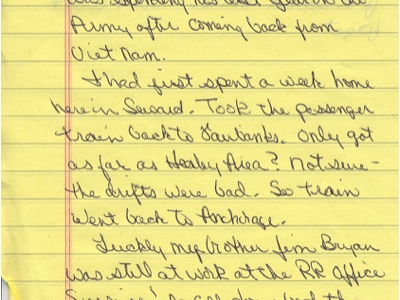 was spending his last year in the
Army after coming back from
Viet Nam.
I had just spent a week home
here in Seward. Took the passenger
train back to Fairbanks. Only got
as far as Healey Area? Not sure -
the drifts were bad. So train
went back to Anchorage.
Luckly my brother Jim Bryan
was still at work at the RR Office